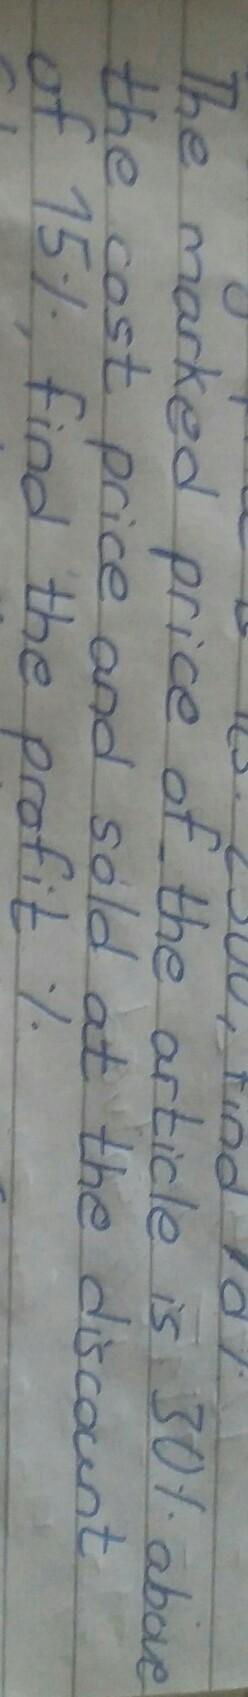 is Rs. 2500, find
The marked price of the article is 30%. above
the cost price and sold at the discount
of 15%, find the profit %.